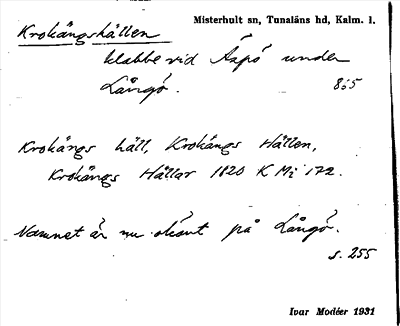 Misterhult sn, Tunaläns hd, Kalm. l.
Krokängshällen
klabbe vid Äspö under
Långö. 8:5
Krokängs häll, Krokängs Hällen,
Krokängs Hällar 1820 K Mi 172.
Namnet är nu okänt på Långö.
s. 255
Ivar Modéer 1931